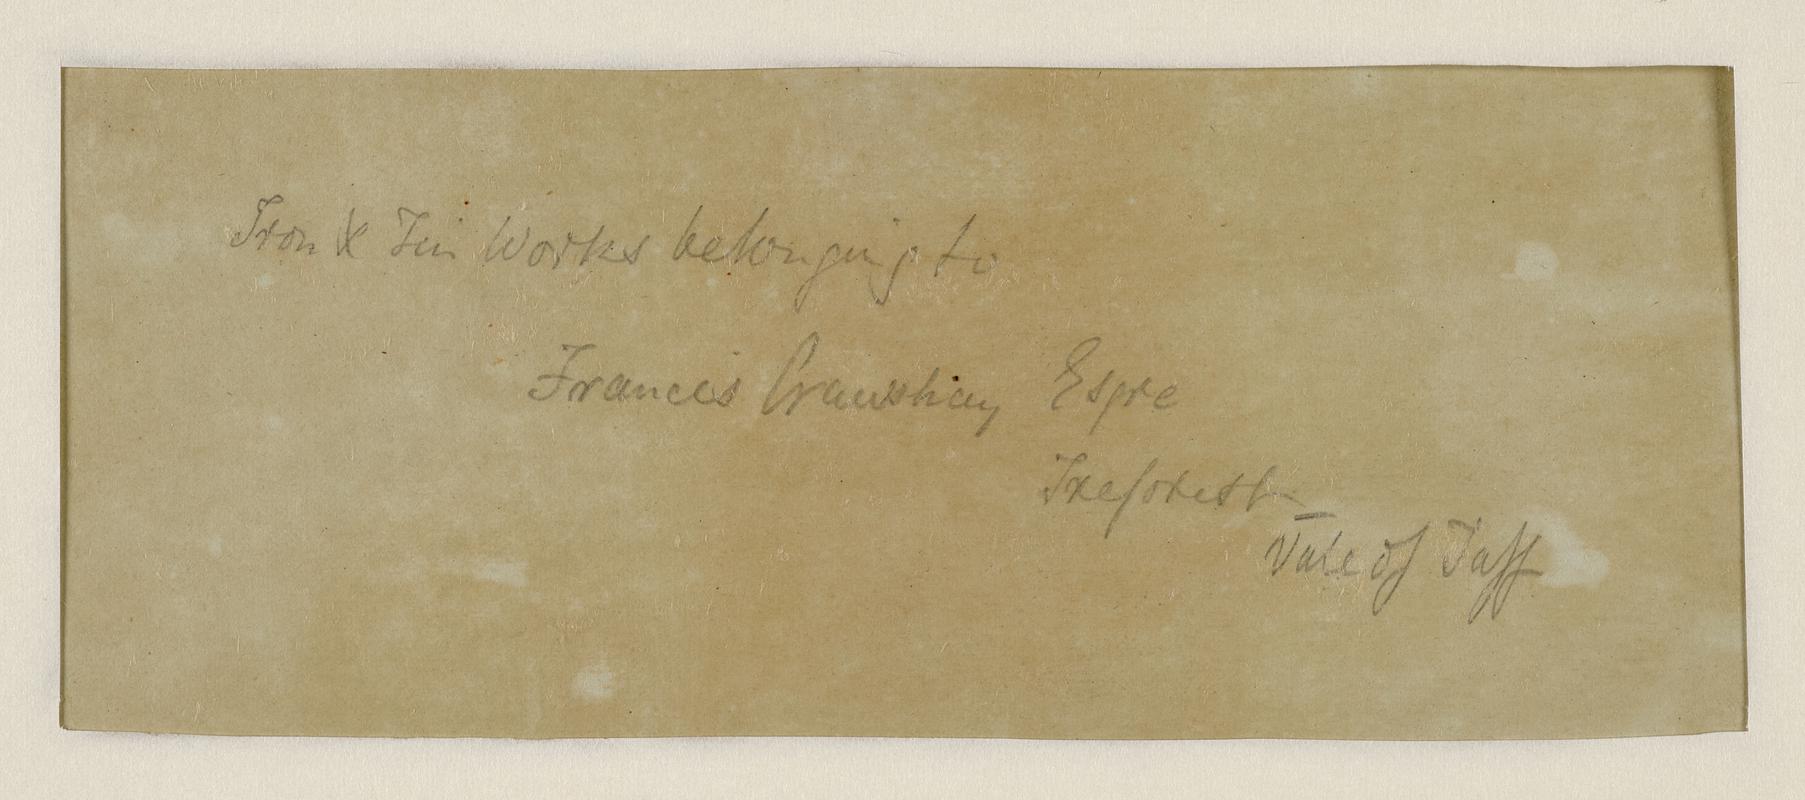 Iron & Tin Works belonging to
Francis Crawshay Esqre
Treforest
Vale of Taff